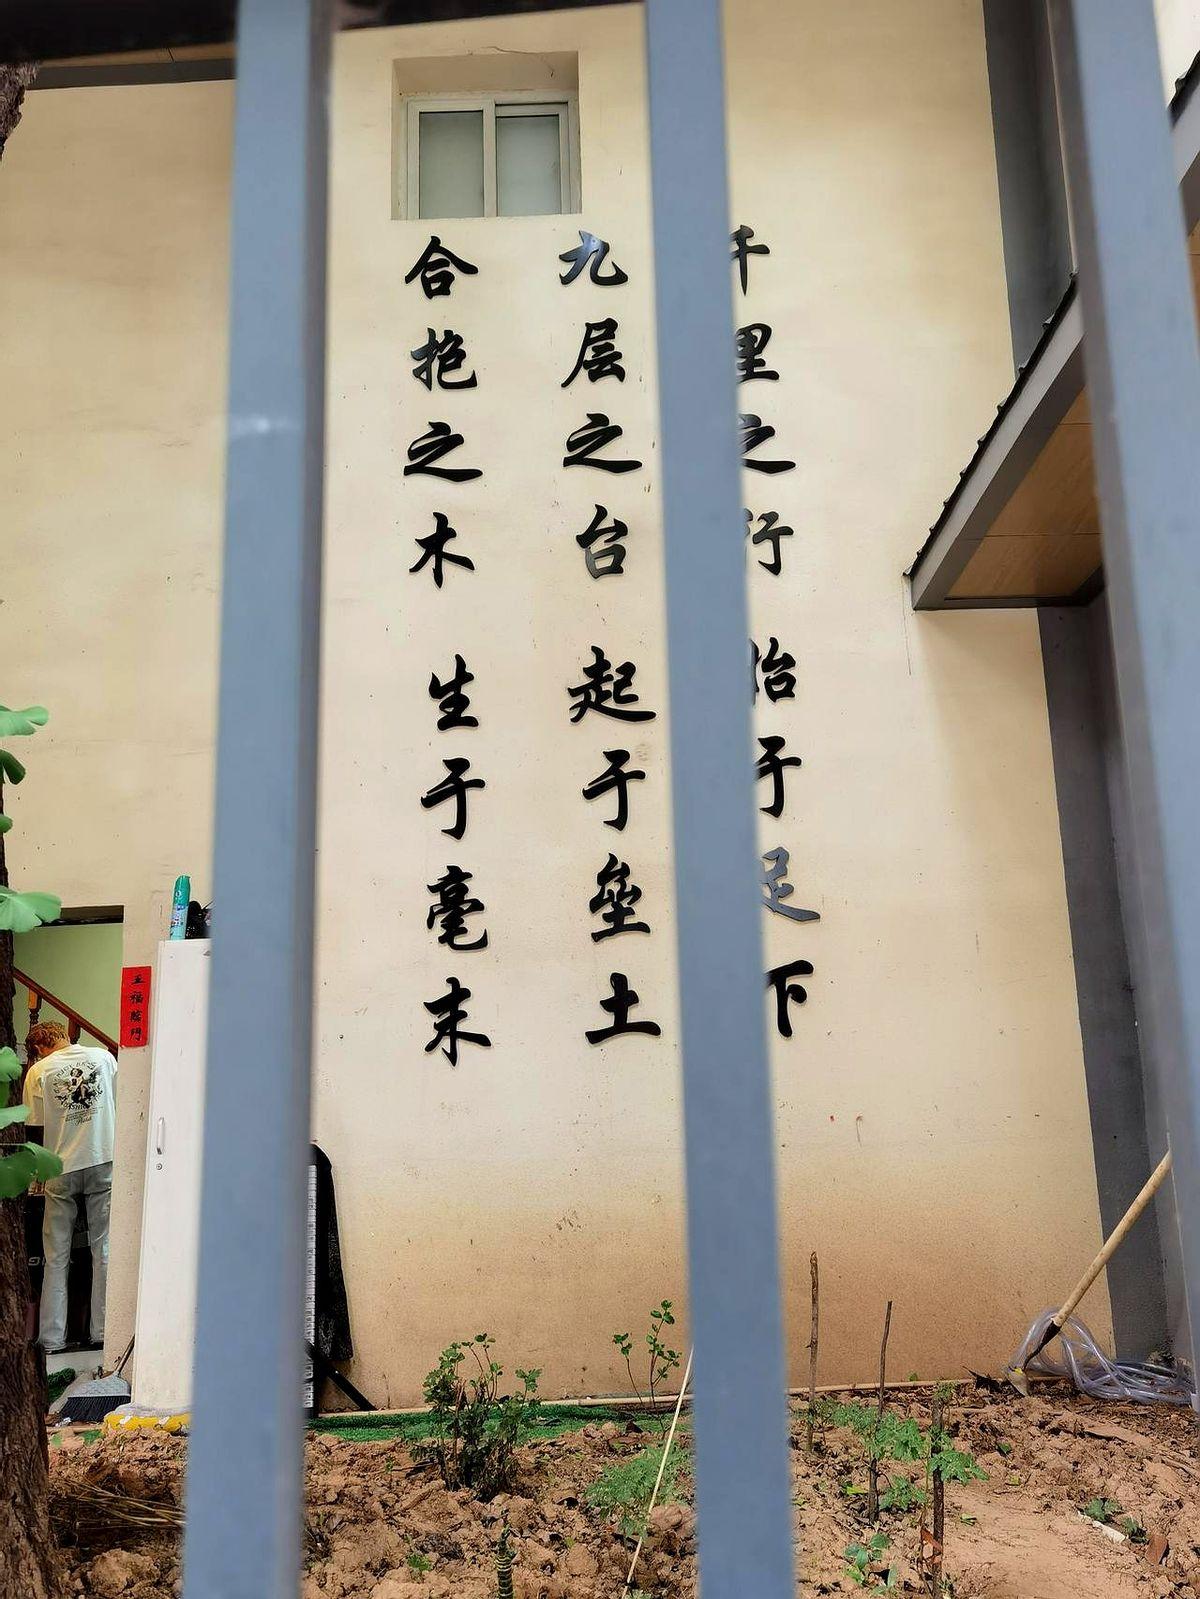 合抱之木 生于毫末
九层之台 起于垒土
千里之行 始于足下
五福臨門